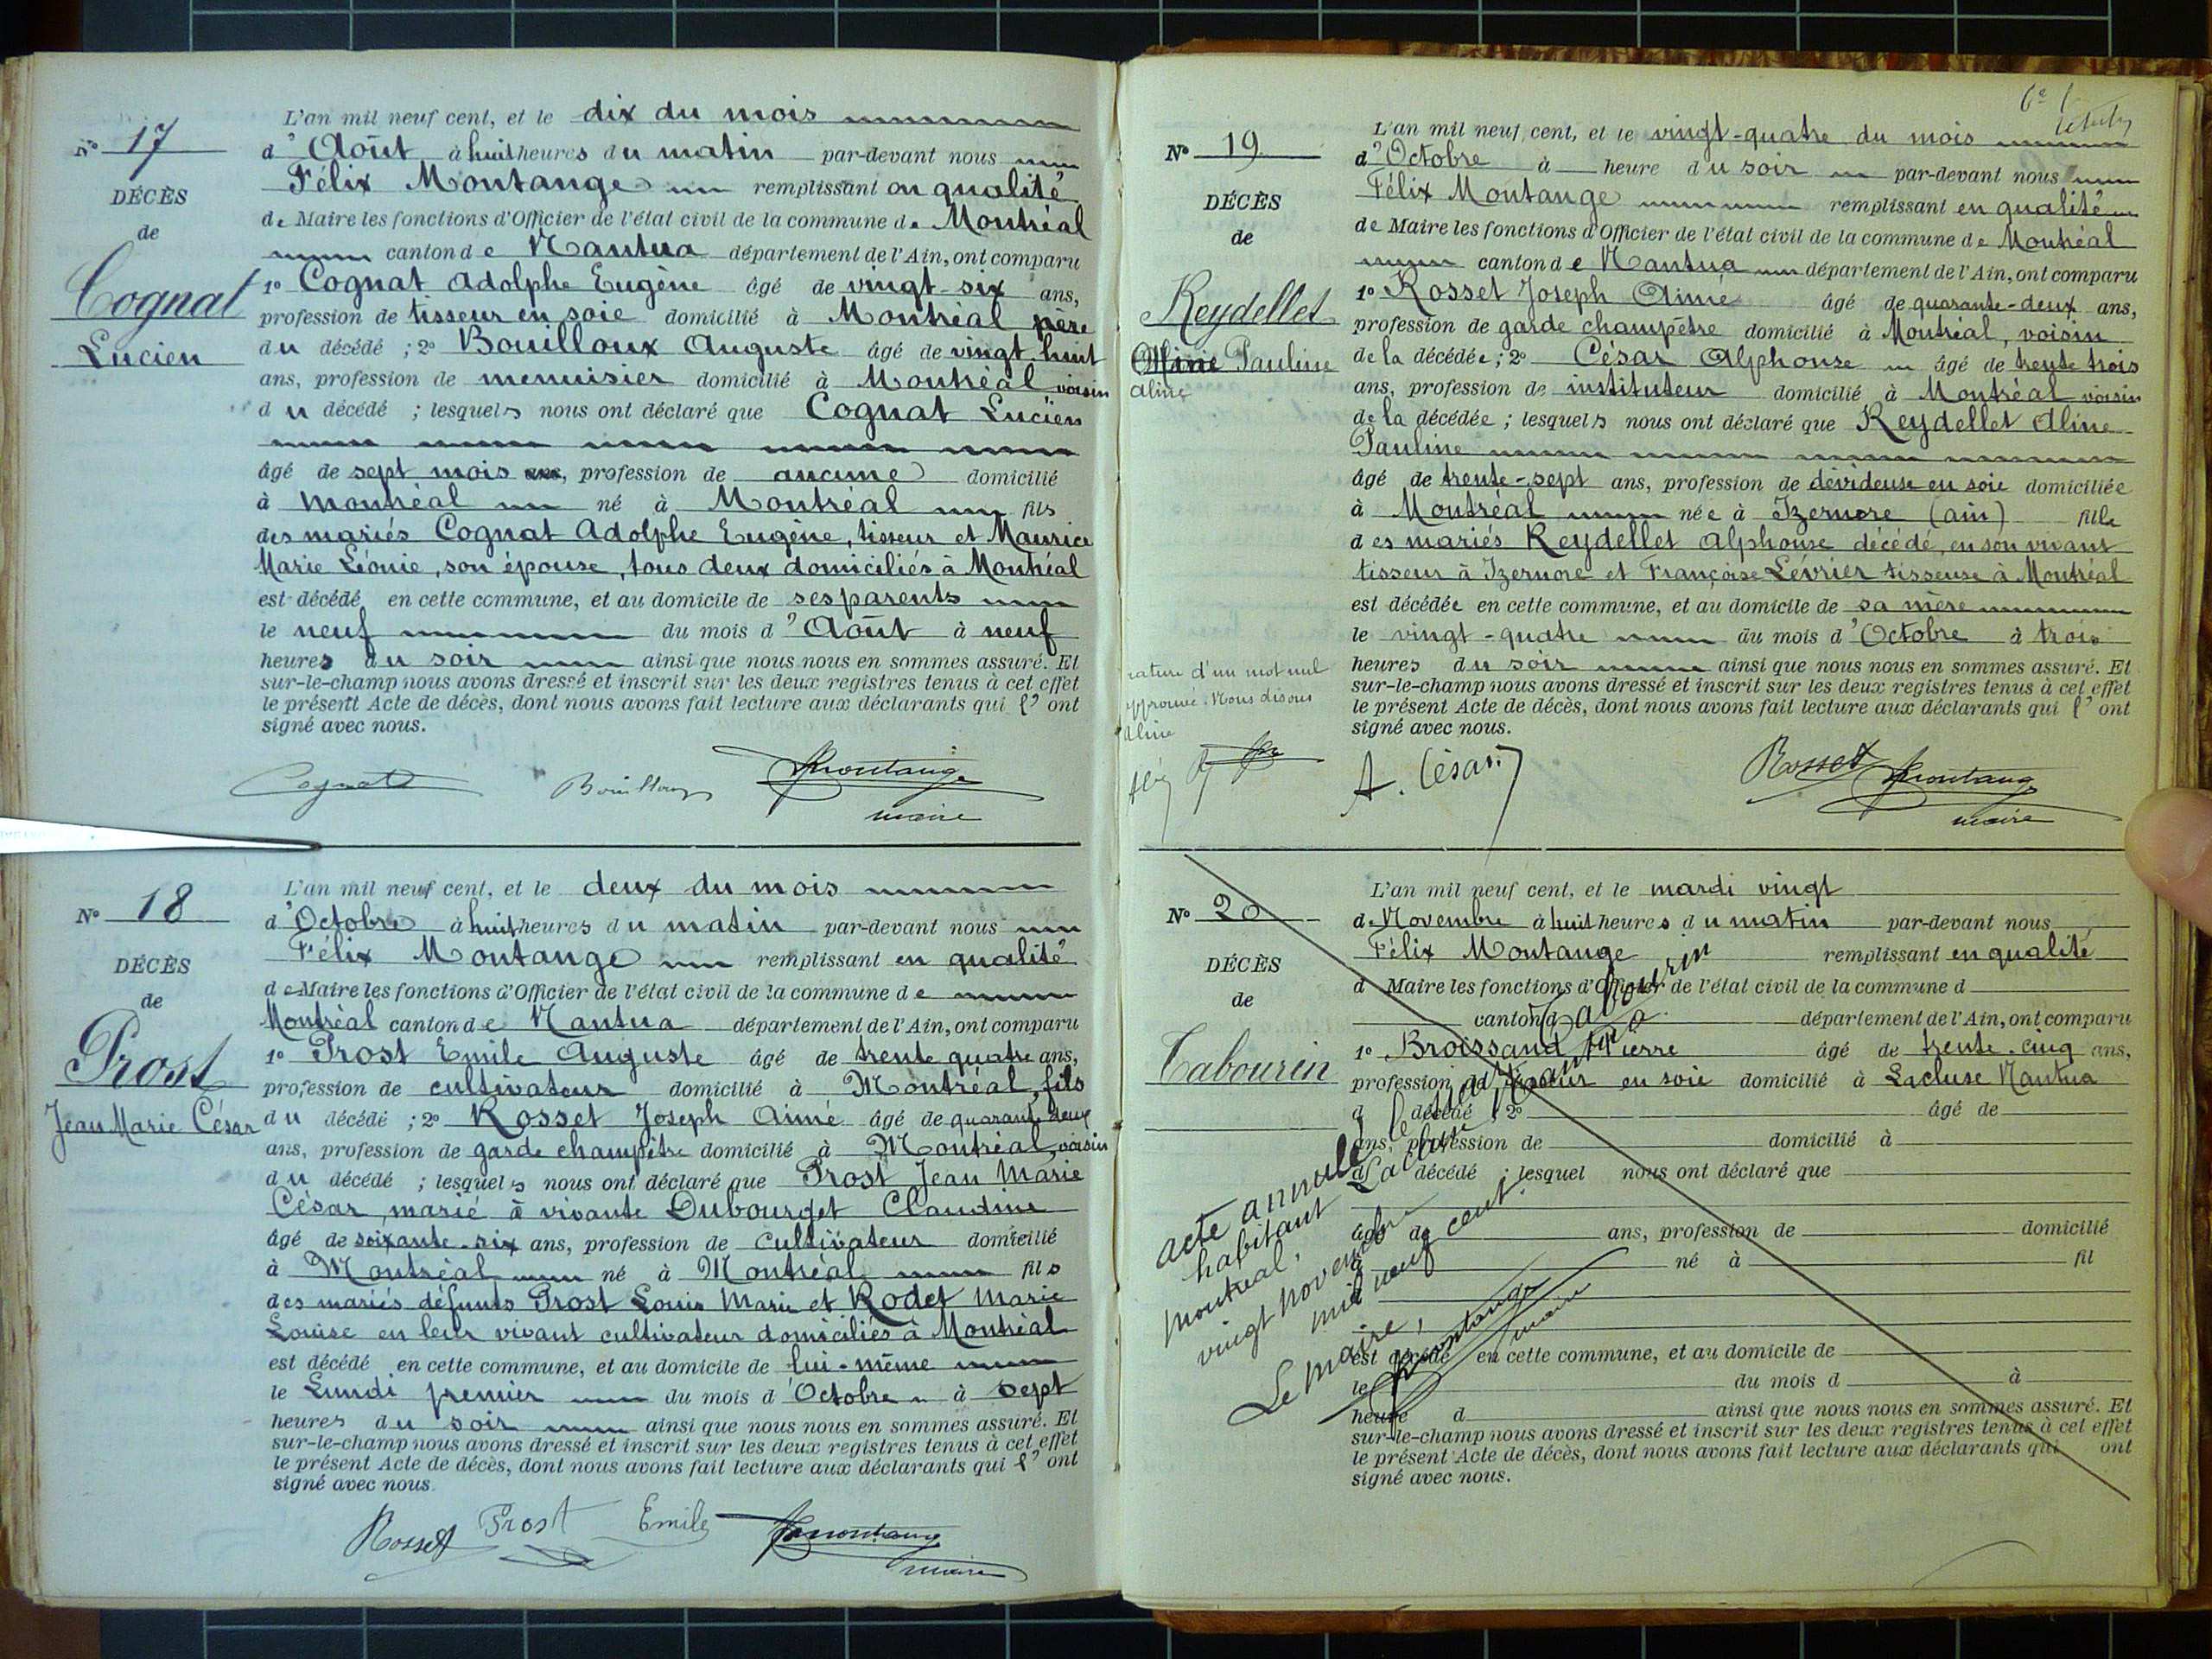 N° 17
DÉCÈS
de
Cognat
Lucien
L'an mil neuf cent, et le dix du mois
d'Août à huit heures du matin par-devant nous
Félix Montange remplissant en qualité
de Maire les fonctions d'Officier de l'état civil de la commune de Montréal
canton de Nantua département de l'Ain, ont comparu
1° Cognat Adolphe Eugène âgé de vingt-six ans,
profession de tisseur en soie domicilié à Montréal père
du décédé ; 2° Bouilloux Auguste âgé de vingt huit
ans, profession de menuisier domicilié à Montréal voisin
du décédé ; lesquels nous ont déclaré que Cognat Lucien
âgé de sept mois ans, profession de aucune domicilié
à Montréal né à Montréal fils
des mariés Cognat Adolphe Eugène, tisseur et Maurice
Marie Léonie, son épouse, tous deux domiciliés à Montréal
est décédé en cette commune, et au domicile de ses parents
le neuf du mois d'Août à neuf
heures du soir ainsi que nous nous en sommes assuré. Et
sur-le-champ nous avons dressé et inscrit sur les deux registres tenus à cet effet
le présent Acte de décès, dont nous avons fait lecture aux déclarants qui l'ont
signé avec nous.
Cognat Bouilloux Fmontange
maire
N° 18
DÉCÈS
de
Prost
Jean Marie César
L'an mil neuf cent, et le deux du mois
d'Octobre à huit heures du matin par-devant nous
Félix Montange remplissant en qualité
de Maire les fonctions d'Officier de l'état civil de la commune de
Montréal canton de Nantua département de l'Ain, ont comparu
1° Prost Emile Auguste âgé de trente quatre ans,
profession de cultivateur domicilié à Montréal, fils
du décédé ; 2° Rosset Joseph Aimé âgé de quarante deux
ans, profession de garde champêtre domicilié à Montréal, voisin
du décédé ; lesquels nous ont déclaré que Prost Jean Marie
César, marié à vivante Dubourget Claudine
âgé de soixante-six ans, profession de cultivateur domicilié
à Montréal né à Montréal fils
des mariés défunts Prost Louis Marie et Rodet Marie
Louise en leur vivant cultivateur domiciliés à Montréal
est décédé en cette commune, et au domicile de lui-même
le Lundi premier du mois d'Octobre à sept
heures du soir ainsi que nous nous en sommes assuré. Et
sur-le-champ nous avons dressé et inscrit sur les deux registres tenus à cet effet
le présent Acte de décès, dont nous avons fait lecture aux déclarants qui l'ont
signé avec nous.
Rosset Prost Emile Fmontange
maire
N° 19
DÉCÈS
de
Reydellet
Pauline
Aline
L'an mil neuf cent, et le vingt-quatre du mois
d'Octobre à heure du soir par-devant nous
Félix Montange remplissant en qualité
de Maire les fonctions d'Officier de l'état civil de la commune de Montréal
canton de Nantua département de l'Ain, ont comparu
1° Rosset Joseph Aimé âgé de quarante-deux ans,
profession de garde champêtre domicilié à Montréal, voisin
de la décédée ; 2° César Alphonse âgé de trente trois
ans, profession de instituteur domicilié à Montréal voisin
de la décédée ; lesquels nous ont déclaré que Reydellet Aline
Pauline
âgé de trente-sept ans, profession de dévideuse en soie domiciliée
à Montréal née à Izernore (ain) fille
des mariés Reydellet Alphonse décédé, en son vivant
tisseur à Izernore et Françoise Lévrier tisseuse à Montréal
est décédée en cette commune, et au domicile de sa mère
le vingt-quatre du mois d'Octobre à trois
heures du soir ainsi que nous nous en sommes assuré. Et
sur-le-champ nous avons dressé et inscrit sur les deux registres tenus à cet effet
le présent Acte de décès, dont nous avons fait lecture aux déclarants qui l'ont
signé avec nous.
rature d'un mot nul
approuvé. Nous disons
Aline
A. César Rosset Fmontange
maire
N° 20
DÉCÈS
de
Cabourin
L'an mil neuf cent, et le mardi vingt
de Novembre à huit heures du matin par-devant nous
Félix Montange remplissant en qualité
d Maire les fonctions d'Officier de l'état civil de la commune d
canton d département de l'Ain, ont comparu
1° Broissand Pierre âgé de trente-cinq ans,
profession de tisseur en soie domicilié à Lacluse Nantua
d décédé ; 2° âgé de
ans, profession de domicilié à
d décédé ; lesquel nous ont déclaré que
âgé de ans, profession de domicilié
à né à fil
est décédé en cette commune, et au domicile de
le du mois d à
heure d ainsi que nous nous en sommes assuré. Et
sur-le-champ nous avons dressé et inscrit sur les deux registres tenus à cet effet
le présent Acte de décès, dont nous avons fait lecture aux déclarants qui ont
signé avec nous.
acte annulé Cabourin
habitant
Montréal,
vingt novembre
mil neuf cent.
Le Maire,
Fmontange
maire